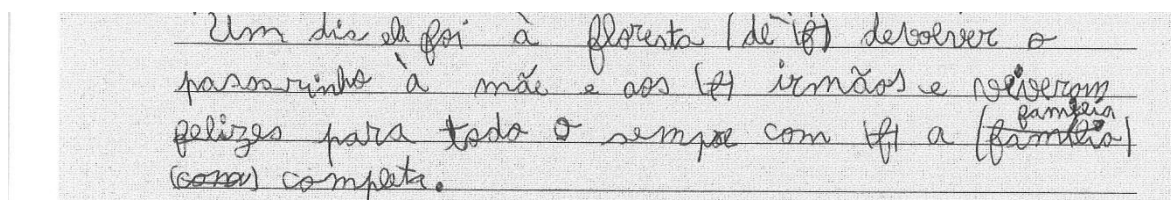 Um dia ela foi à floresta (de (f) devolver o
passarinho à mãe e aos (f) irmãos e viveram
felizes para todo o sempre com (f) a (família) familia
(cona) completa.